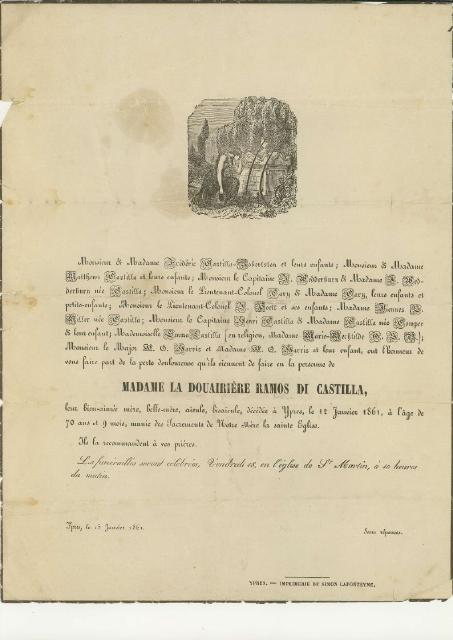 Monsieur & Madame Frédéric Castilla-Robertson et leurs enfants; Monsieur & Madame
Matthews Castilla et leurs enfants; Monsieur le Capitaine & Madame
née Castilla; Monsieur le Lieutenant-Colonel Cary & Madame Cary, leurs enfants et
petits-enfants; Monsieur le Lieutenant-Colonel et ses enfants; Madame
née Castilla; Monsieur le Capitaine Henri Castilla & Madame Castilla née
& leur enfant; Mademoiselle Emma Castilla (en religion, Madame Marie-Mechtilde
Monsieur le Major M. G. et Madame M. G. et leur enfant, ont l'honneur de
vous faire part de la perte douloureuse qu'ils viennent de faire en la personne de
MADAME LA DOUAIRIÈRE RAMOS DI CASTILLA,
leur bien-aimée mère, belle-mère, aïeule, bisaïeule, décédée à Ypres, le 12 Janvier 1861, à l'âge de
70 ans et 9 mois, munie des Sacrements de Notre Mère la sainte Eglise.
Ils la recommandent à vos prières.
Les funérailles seront célébrées, Vendredi 18, en l'église de St Martin, à 10 heures
du matin.
Ypres, le 15 Janvier 1861.
Sans réponse.
YPRES. — IMPRIMERIE DE SIMON LAFONTEYNE.